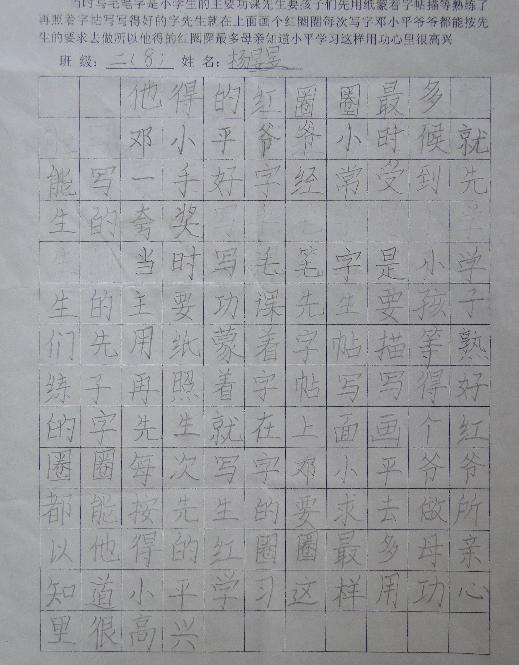 当时写毛笔字是小学生的主要功课先生要孩子们先用纸蒙着字帖描等熟练了
再照着字帖写写得好的字先生就在上面画个红圈圈每次写字邓小平爷爷都能按先
生的要求去做所以他得的红圈圈最多母亲知道小平学习这样用功心里很高兴
班级:二(8) 姓名:杨
他得的红圈圈最多
邓小平爷爷小时候就
能写一手好字经常受到先
生的夸奖
当时写毛笔字是小学
生的主要功课先生要孩子
们先用纸蒙着字帖描等熟
练子再照着字帖写写得好
的字先生就在上面画个红
圈圈每次写字邓小平爷爷
都能按先生的要求去做所
以他得的红圈圈最多母亲
知道小平学习这样用功心
里很高兴